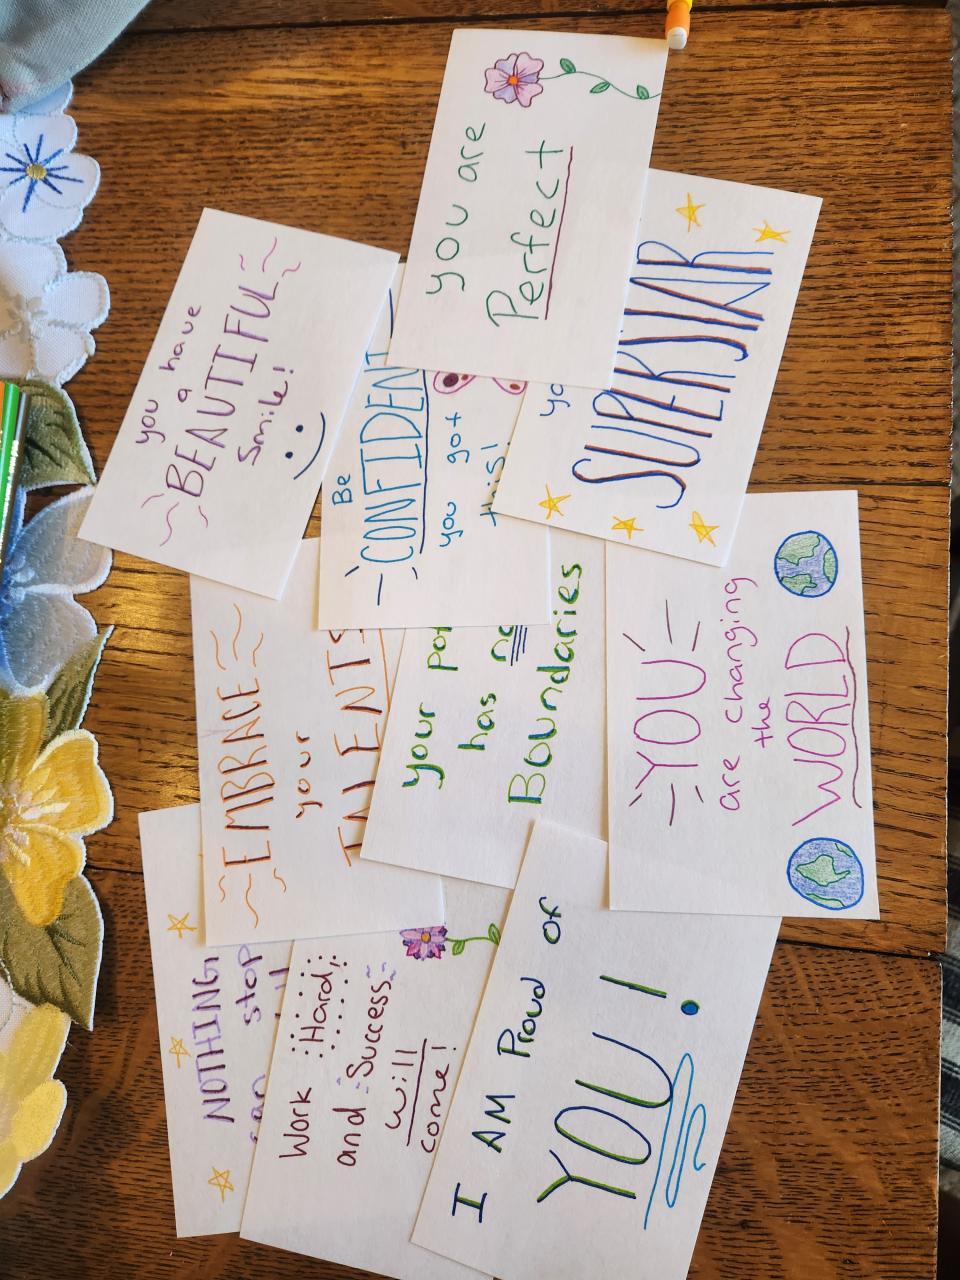 you are
Perfect
SUPERSTAR
you have
a
BEAUTIFUL
Smile!
Be
CONFIDENT
you got
this!
EMBRACE
your
TALENTS
your
has no
Boundaries
YOU
are changing
the
WORLD
NOTHING
can stop
Work Hard
and Success
will
come!
I AM Proud of
YOU!